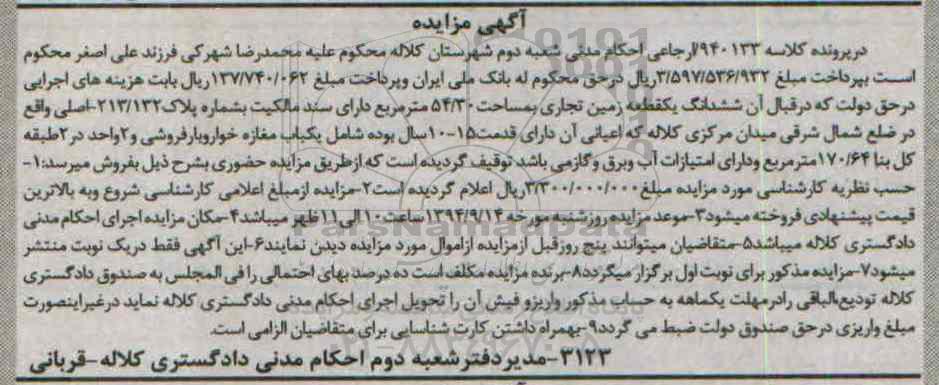 آگهی مزایده
درپرونده کلاسه ۹۴۰۱۳۳/ارجاعی احکام مدنی شعبه دوم شهرستان کلاله محکوم علیه محمدرضا شهرکی فرزند علی اصغر محکوم
است بپرداخت مبلغ ۳/۵۹۷/۵۳۶/۹۳۲ریال درحق محکوم له بانک ملی ایران وپرداخت مبلغ ۱۳۷/۷۴۰/۰۶۲ریال بابت هزینه های اجرایی
درحق دولت که درقبال آن ششدانگ یکقطعه زمین تجاری بمساحت ۵۴/۳۰مترمربع دارای سند مالکیت بشماره پلاک۲۱۳/۱۳۲-اصلی واقع
در ضلع شمال شرقی میدان مرکزی کلاله که اعیانی آن دارای قدمت۱۵-۱۰سال بوده شامل یکباب مغازه خواروبارفروشی و۲واحد در۲طبقه
کل بنا۱۷۰/۶۴مترمربع ودارای امتیازات آب وبرق وگازمی باشد توقیف گردیده است که ازطریق مزایده حضوری بشرح ذیل بفروش میرسد:۱-
حسب نظریه کارشناسی مورد مزایده مبلغ۳/۳۰۰/۰۰۰/۰۰۰ریال اعلام گردیده است۲-مزایده ازمبلغ اعلامی کارشناسی شروع وبه بالاترین
قیمت پیشنهادی فروخته میشود۳-موعد مزایده روزشنبه مورخه۱۳۹۴/۹/۱۴ساعت۱۰الی۱۱ظهر میباشد۴-مکان مزایده اجرای احکام مدنی
دادگستری کلاله میباشد۵-متقاضیان میتوانند پنج روزقبل ازمزایده ازاموال مورد مزایده دیدن نمایند۶-این آگهی فقط دریک نوبت منتشر
میشود۷-مزایده مذکور برای نوبت اول برگزار میگردد۸-برنده مزایده مکلف است ده درصد بهای احتمالی را فی المجلس به صندوق دادگستری
کلاله تودیع‌مالباقی رادرمهلت یکماهه به حساب مذکور واریزو فیش آن را تحویل اجرای احکام مدنی دادگستری کلاله نماید درغیراینصورت
مبلغ واریزی درحق صندوق دولت ضبط می گردد۹-بهمراه داشتن کارت شناسایی برای متقاضیان الزامی است.
۳۱۲۳-مدیردفترشعبه دوم احکام مدنی دادگستری کلاله-قربانی
ParsNamadData